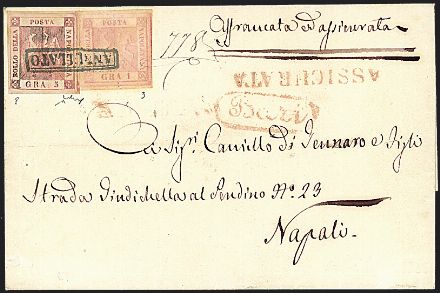 POSTA
BOLLO DELLA
NAPOLETANA
GRA 5
POSTA
BOLLO DELLA
NAPOLETANA
GRA 1
ANNULLATO
778
Affrancata ed assicurata
ASSICURATA
A Sig.ri Camillo di Gennaro e Figli
Strada Giudichella al Pendino No. 23
Napoli.